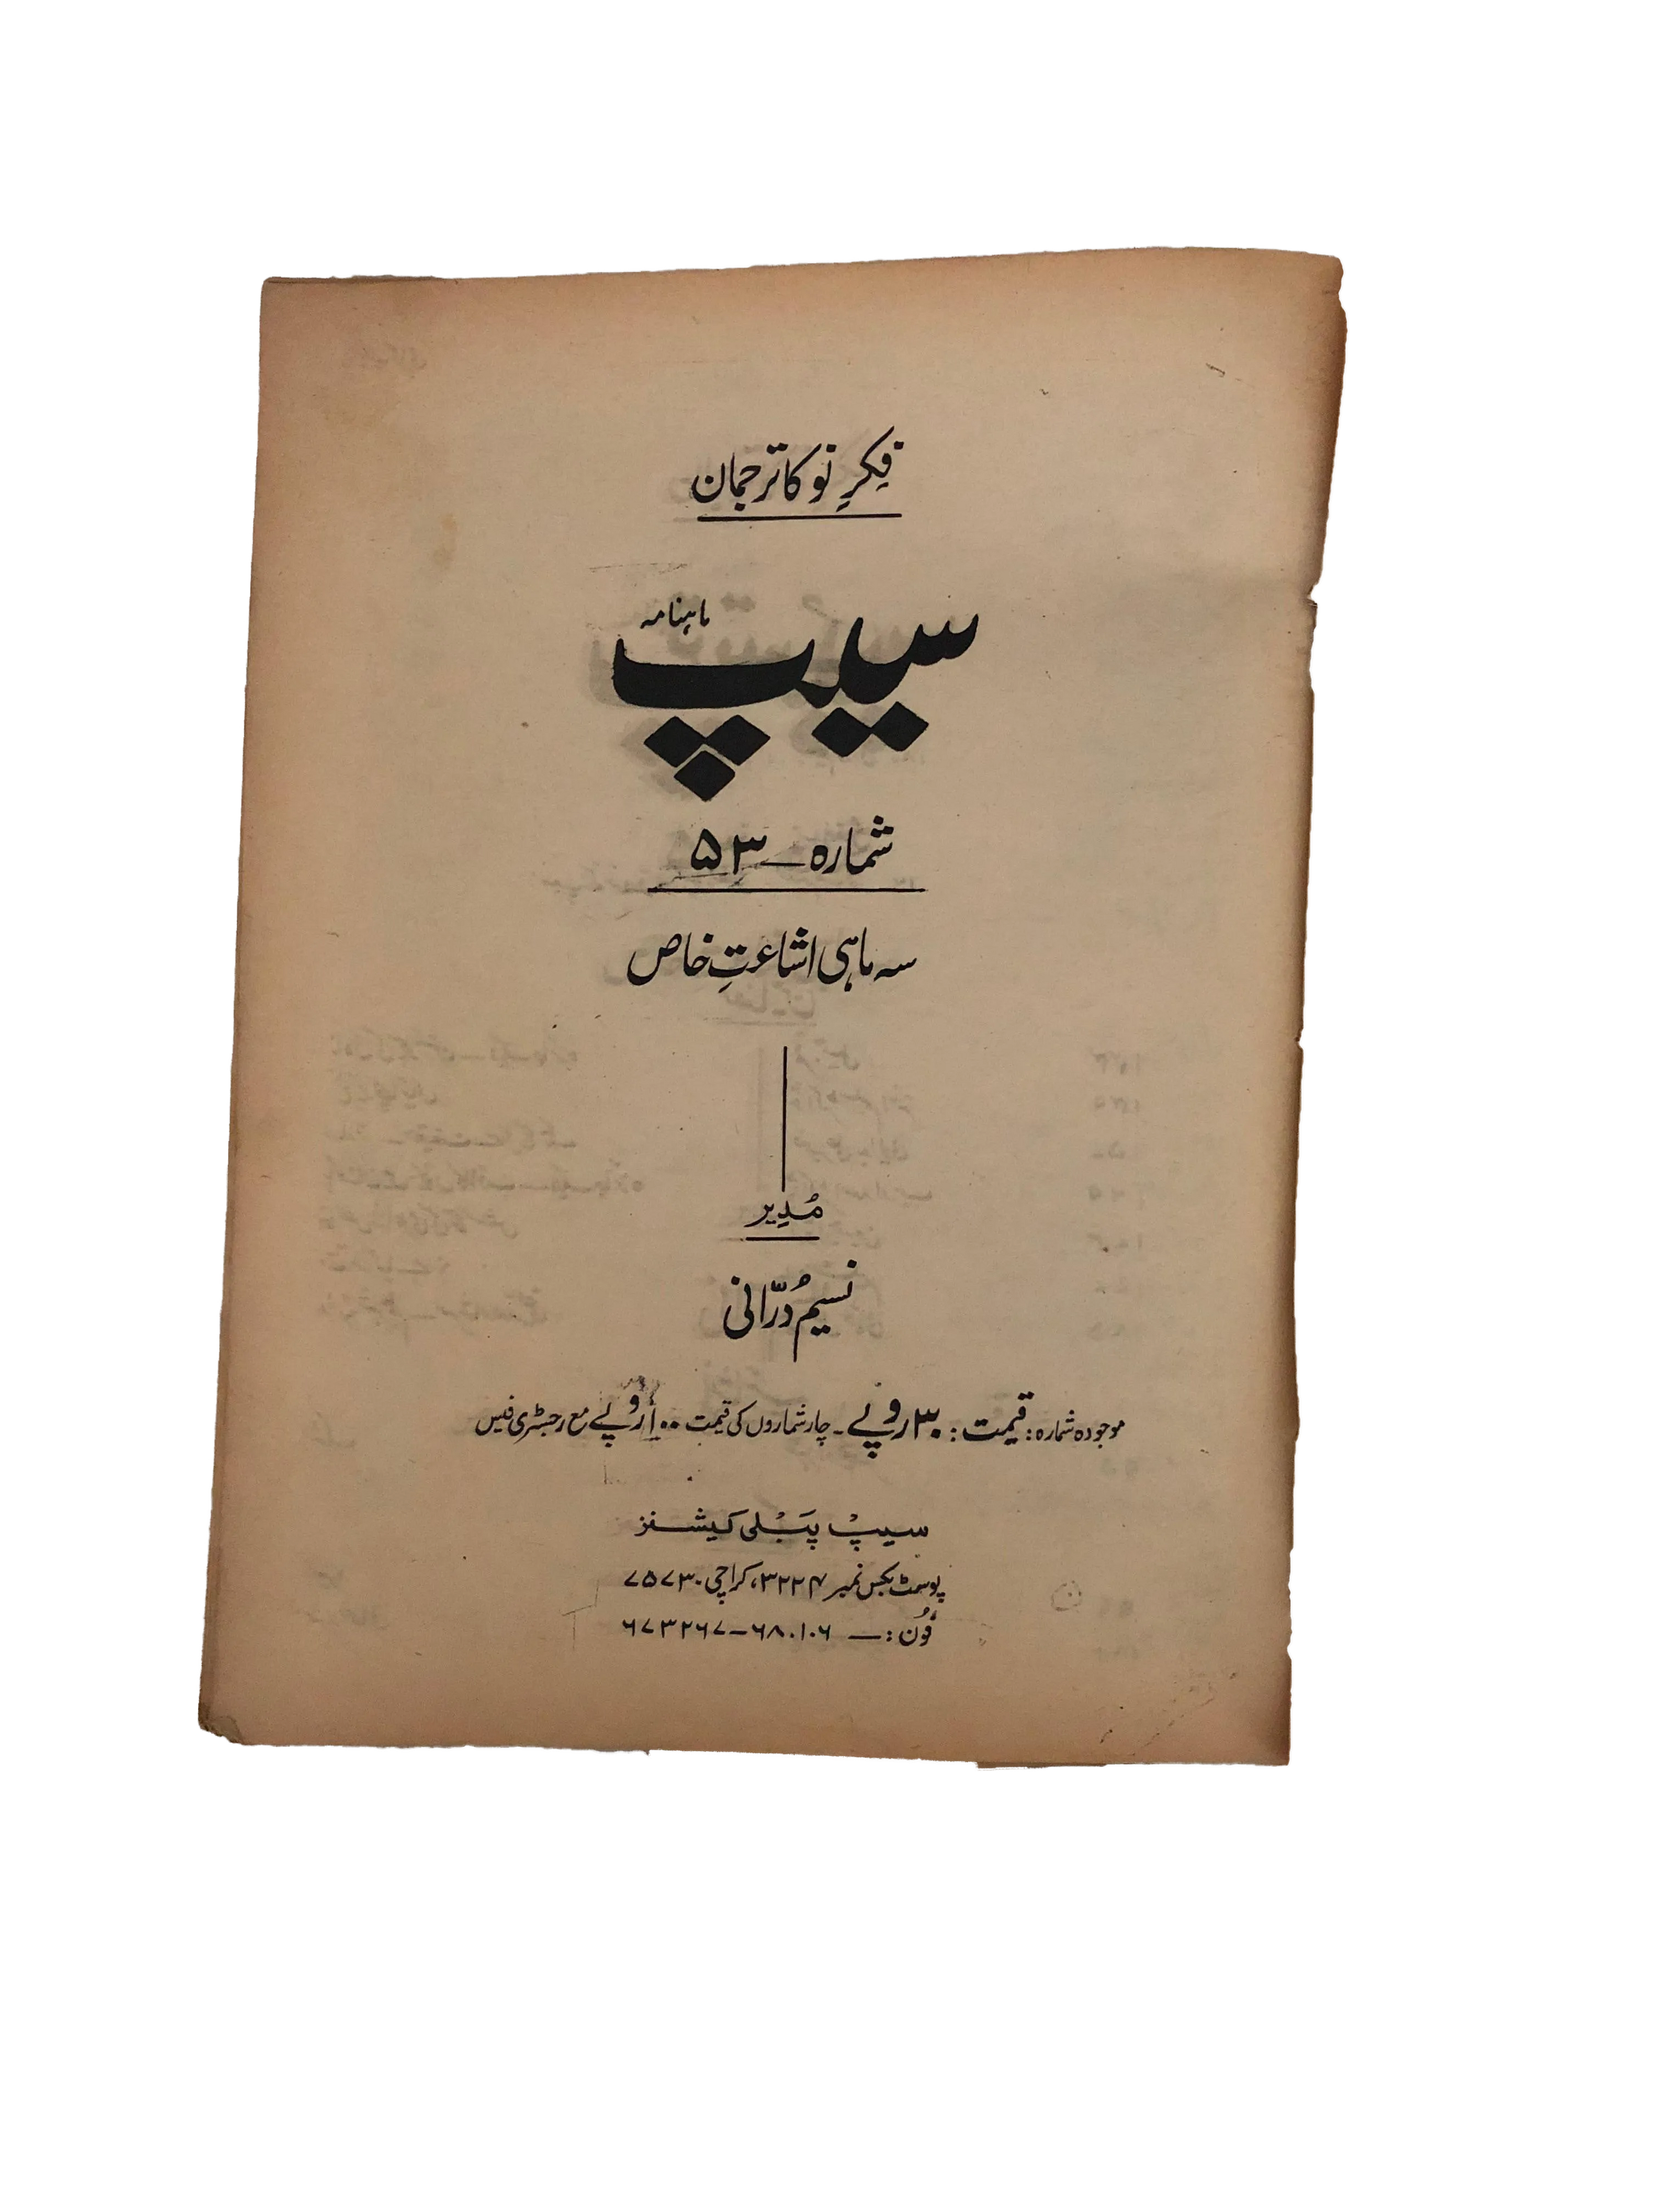 فِکرِ نو کا ترجمان
ماہنامہ
سیپ
شمارہ ــ ۵۳
سہ ماہی اشاعتِ خاص
مُدِیر
نسیم دُرّانی
موجودہ شمارہ: قیمت: ۳۰ روپے ۔ چار شماروں کی قیمت ۱۰۰ روپے مع رجسٹری فیس
سیپ پَبْلی کیشنز
پوسٹ بکس نمبر ۳۲۲۴، کراچی ۷۵۷۳۰
فُون: ــ ۶۸۰۱۰۶ – ۶۷۳۲۶۷